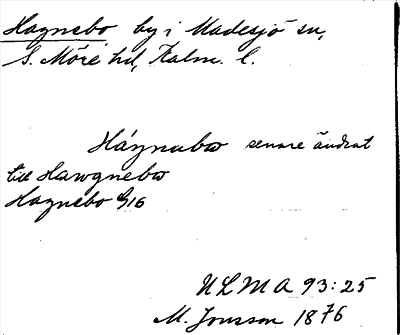 Hagnebo by i Madesjö sn,
S. Möre hd, Kalm. l.
Háŋnabω senare ändrat
till Hawgnebω
Hagnebo G16
ULMA 93:25
M. Jonsson 1876